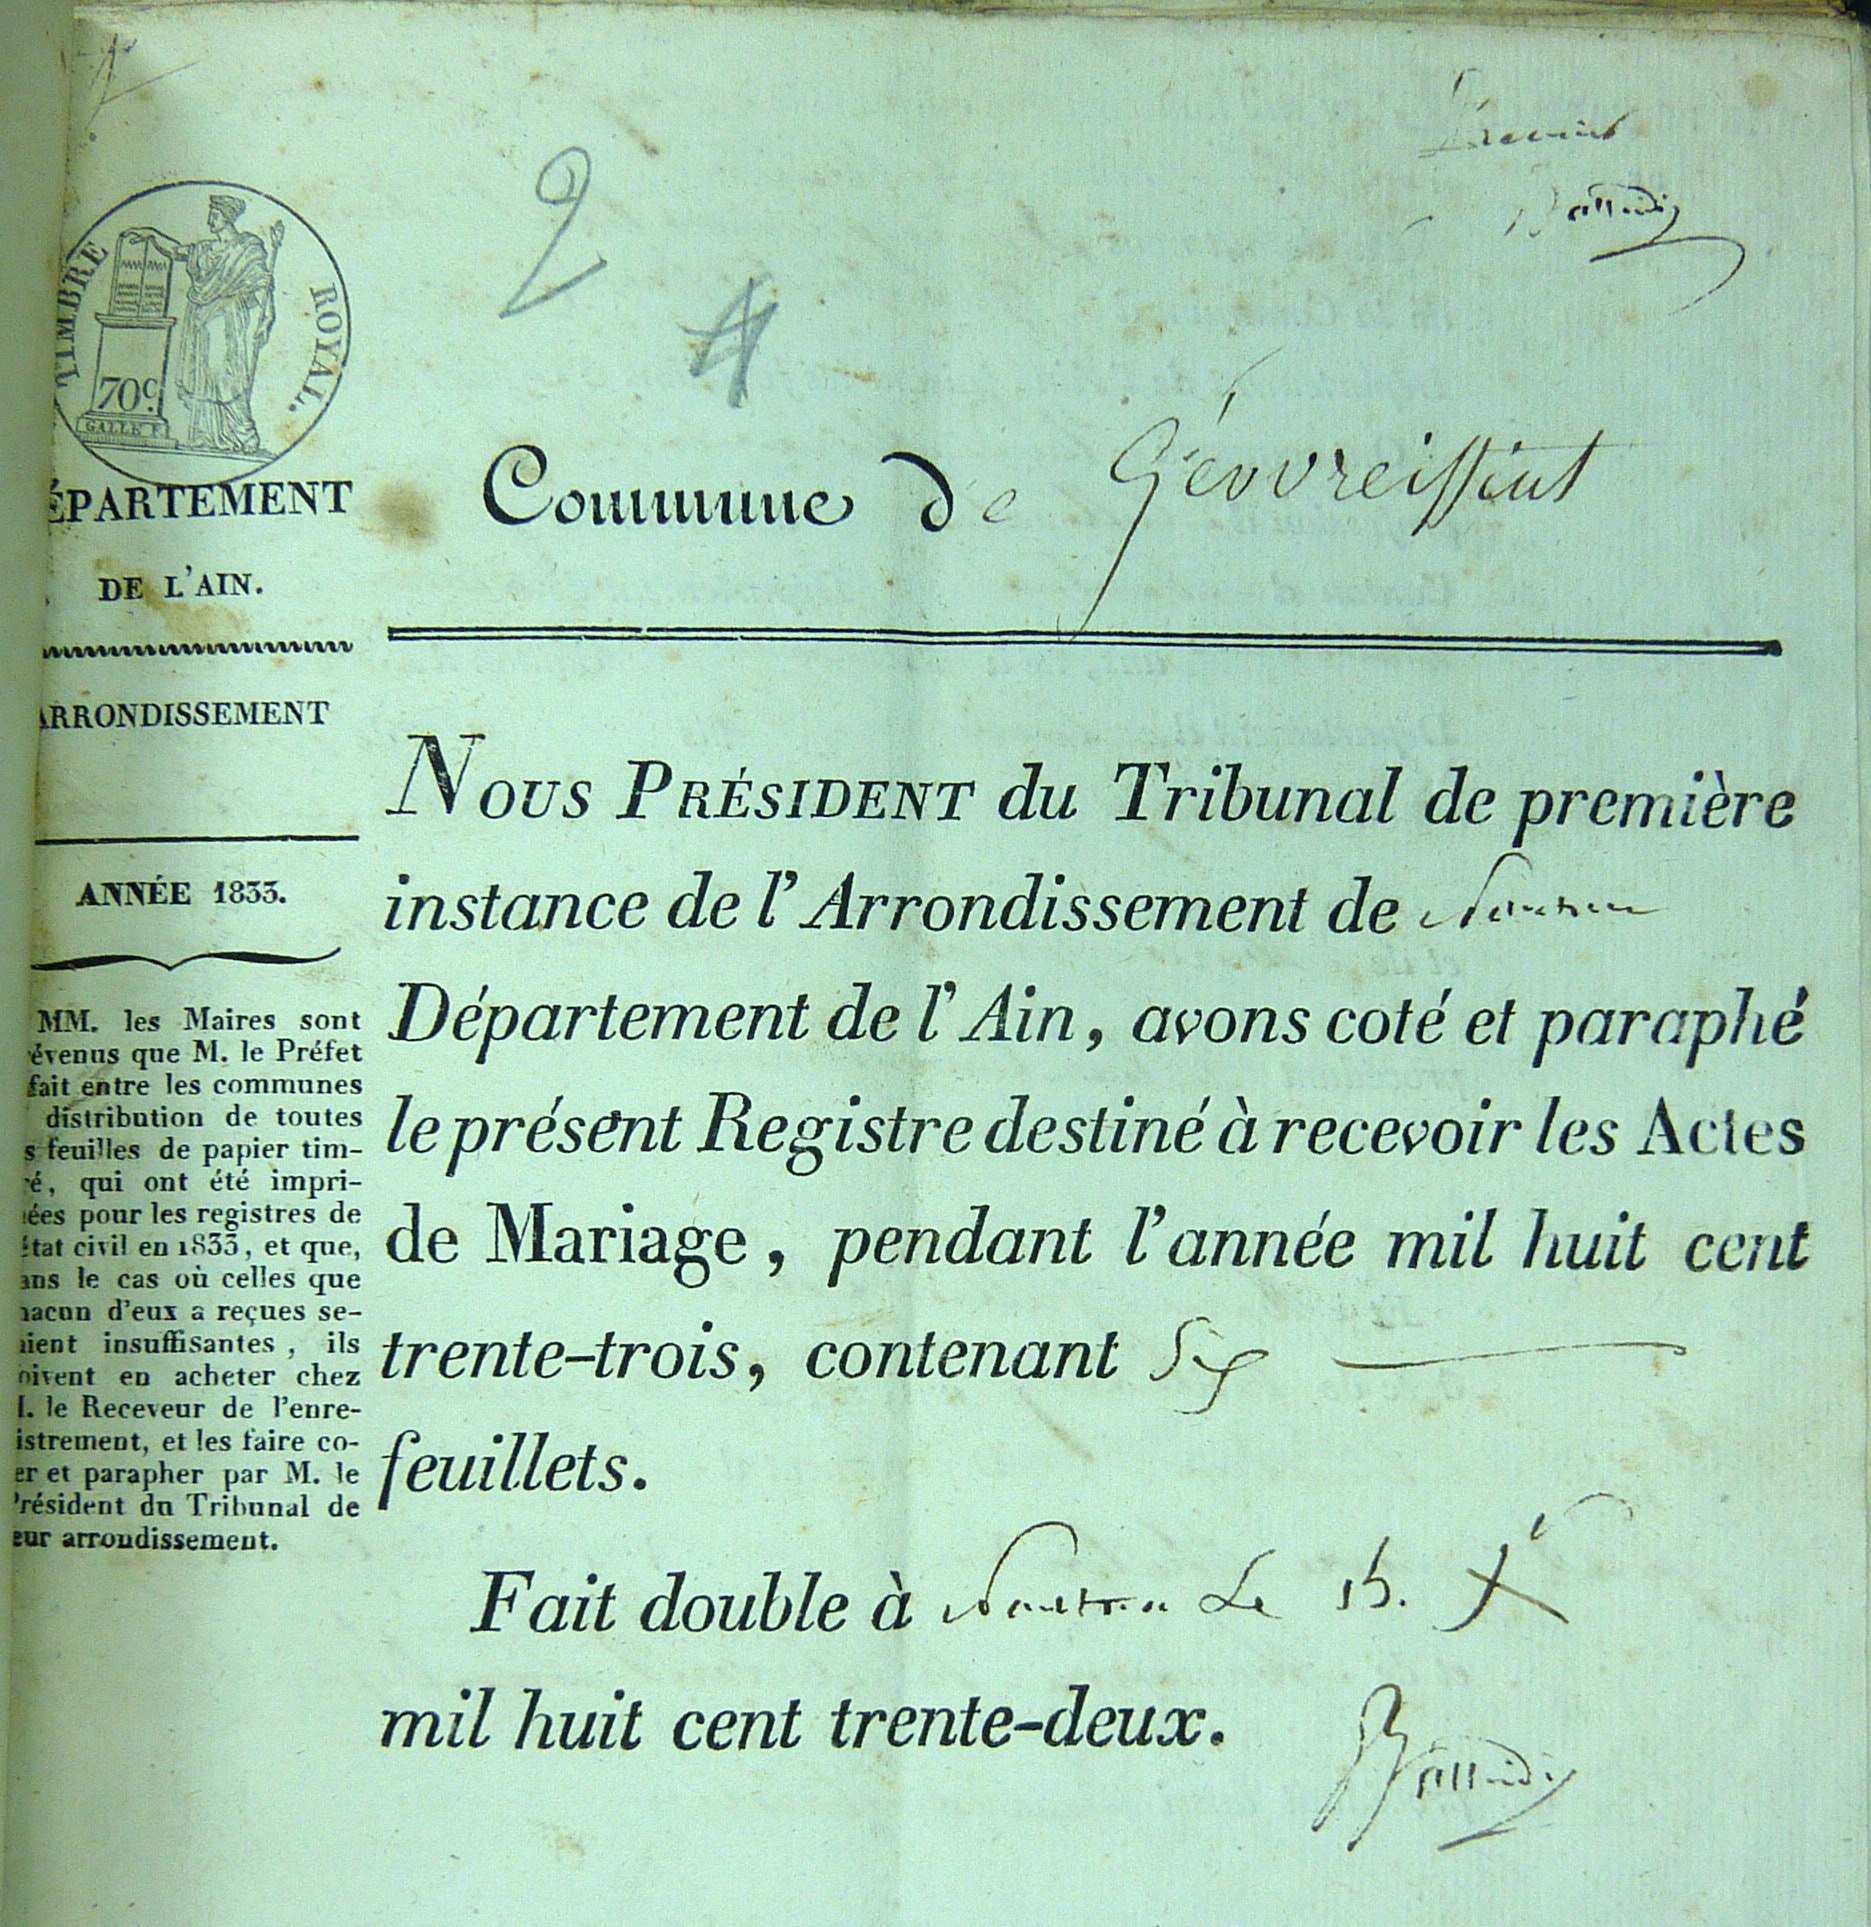 2
4
Premier
TIMBRE ROYAL.
70 c.
GALLE F.
ÉPARTEMENT
DE L'AIN.
ARRONDISSEMENT
ANNÉE 1833.
MM. les Maires sont
évenus que M. le Préfet
fait entre les communes
distribution de toutes
s feuilles de papier tim-
ré, qui ont été impri-
ées pour les registres de
état civil en 1833, et que,
ans le cas où celles que
hacun d'eux a reçues se-
aient insuffisantes, ils
oivent en acheter chez
M. le Receveur de l'enre-
istrement, et les faire co-
er et parapher par M. le
Président du Tribunal de
eur arrondissement.
Commune de Géovreissiat
NOUS PRÉSIDENT du Tribunal de première
instance de l'Arrondissement de Nantua
Département de l'Ain, avons coté et paraphé
le présent Registre destiné à recevoir les Actes
de Mariage, pendant l'année mil huit cent
trente-trois, contenant Six
feuillets.
Fait double à Nantua Le 15. Xe
mil huit cent trente-deux.